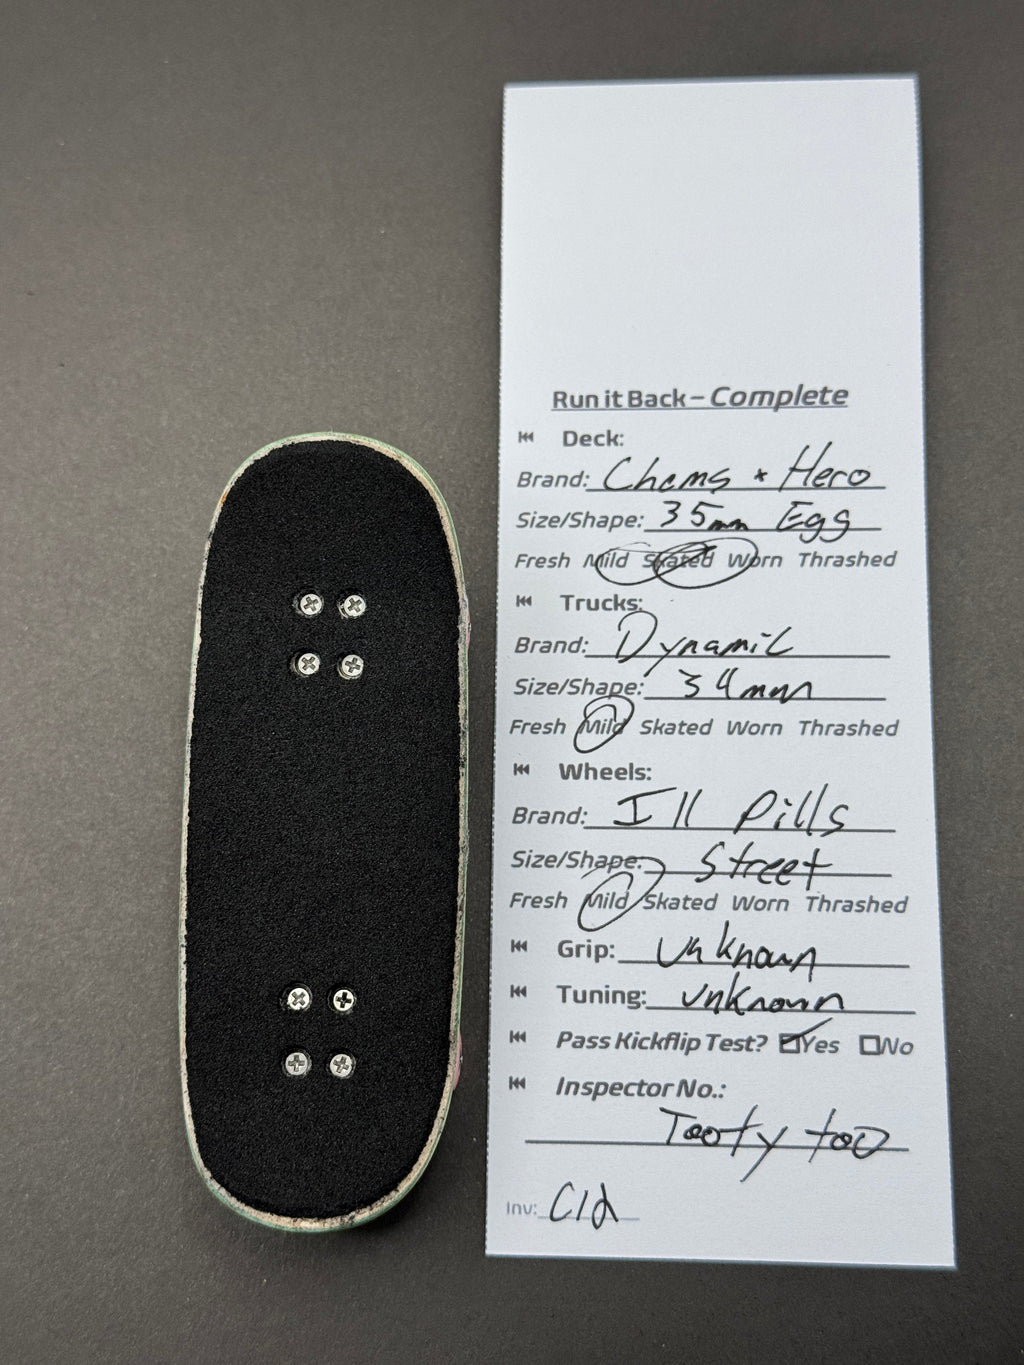 Run it Back – Complete
Deck:
Brand: Chems * Hero
Size/Shape: 35mm Egg
Fresh Mild Skated Worn Thrashed
Trucks:
Brand: Dynamic
Size/Shape: 34mm
Fresh Mild Skated Worn Thrashed
Wheels:
Brand: Ill Pills
Size/Shape: Street
Fresh Mild Skated Worn Thrashed
Grip: unknown
Tuning: unknown
Pass Kickflip Test? Yes No
Inspector No.:
Tooty too
Inv: